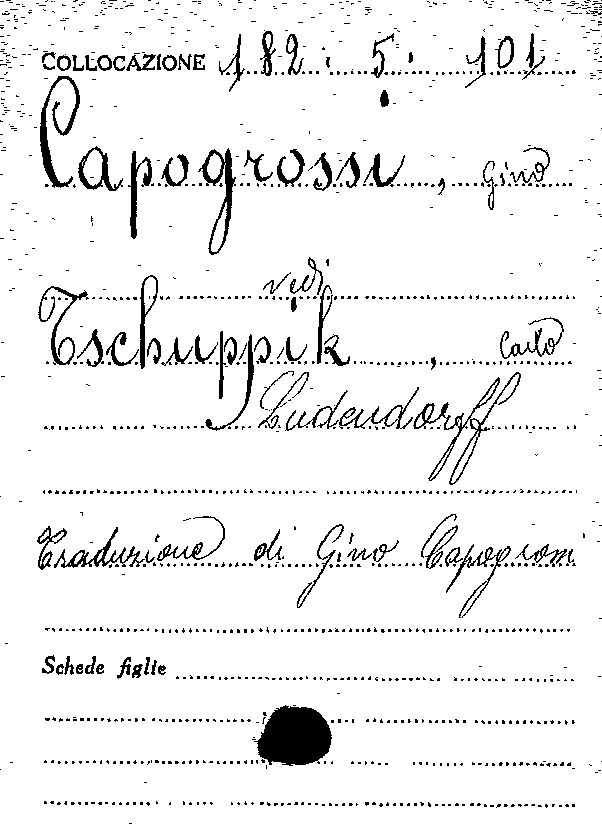 COLLOCAZIONE 182. 5. 101
Capogrossi, Gino
vedi
Tschuppik, Carlo
Ludendorff
Traduzione di Gino Capogrossi
Schede figlie